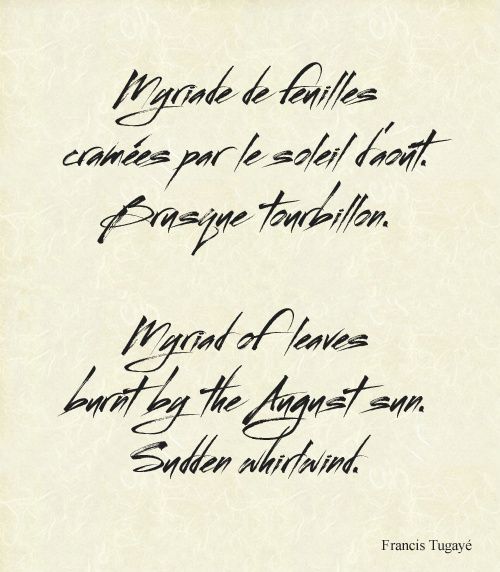 Myriade de feuilles
cramées par le soleil d'août.
Brusque tourbillon.
Myriad of leaves
burnt by the August sun.
Sudden whirlwind.
Francis Tugayé